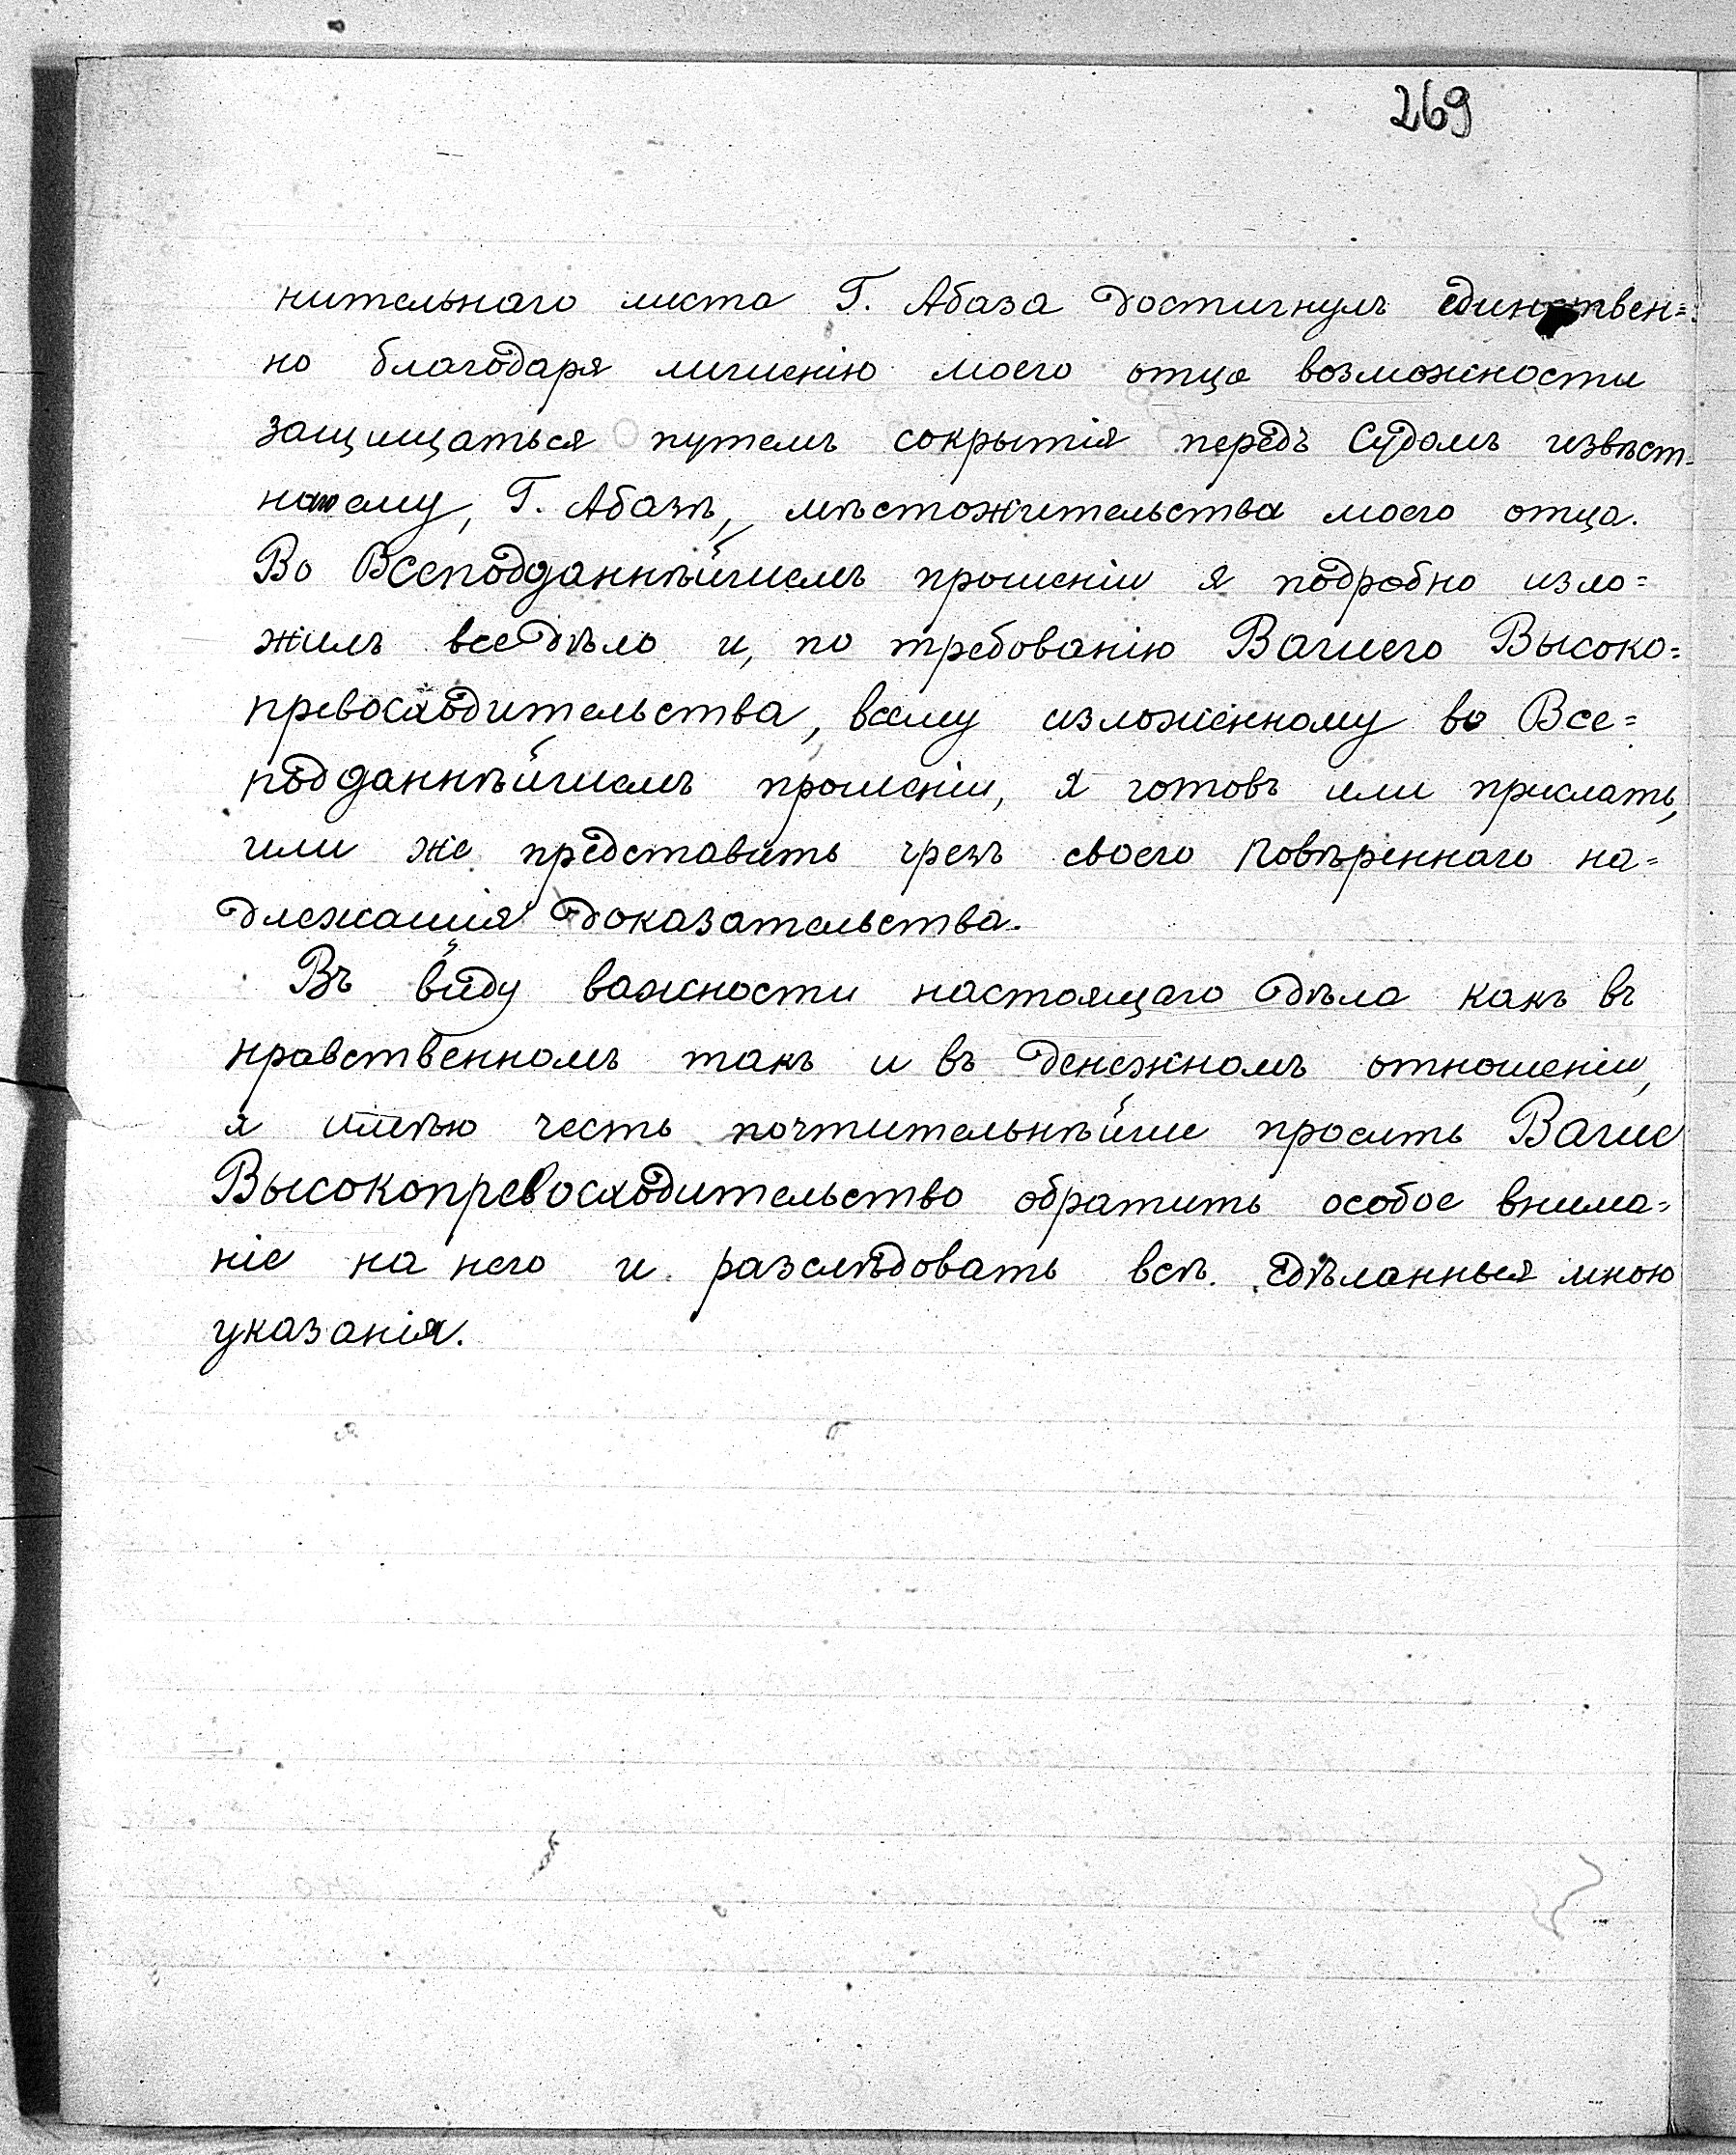 269
нительнаго листа Г. Абаза достигнулъ единствен=
но благодаря лишенію моего отца возможности
защищаться путемъ сокрытія передъ Судомъ извѣст-
наго ему, Г. Абазѣ, мѣстожительства моего отца.
Во Всеподданнѣйшемъ прошеніи я подробно изло=
жилъ все дѣло и, по требованію Вашего Высоко=
превосходительства, всему изложенному во Все=
подданнѣйшемъ прошеніи, я готовъ или прислать,
или же представить чрезъ своего повѣреннаго на=
длежашія доказательства.
Въ виду важности настоящаго дѣла какъ въ
нравственномъ такъ и въ денежномъ отношеніи,
я имѣю честь почтительнѣйше просить Ваше
Высокопревосходительство обратить особое внима=
ніе на него и разслѣдовать всѣ сдѣланныя мною
указанія.